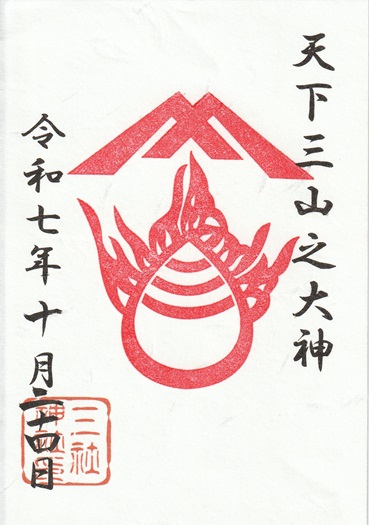 天下三山之大神
令和七年十月二十四日
三社神社